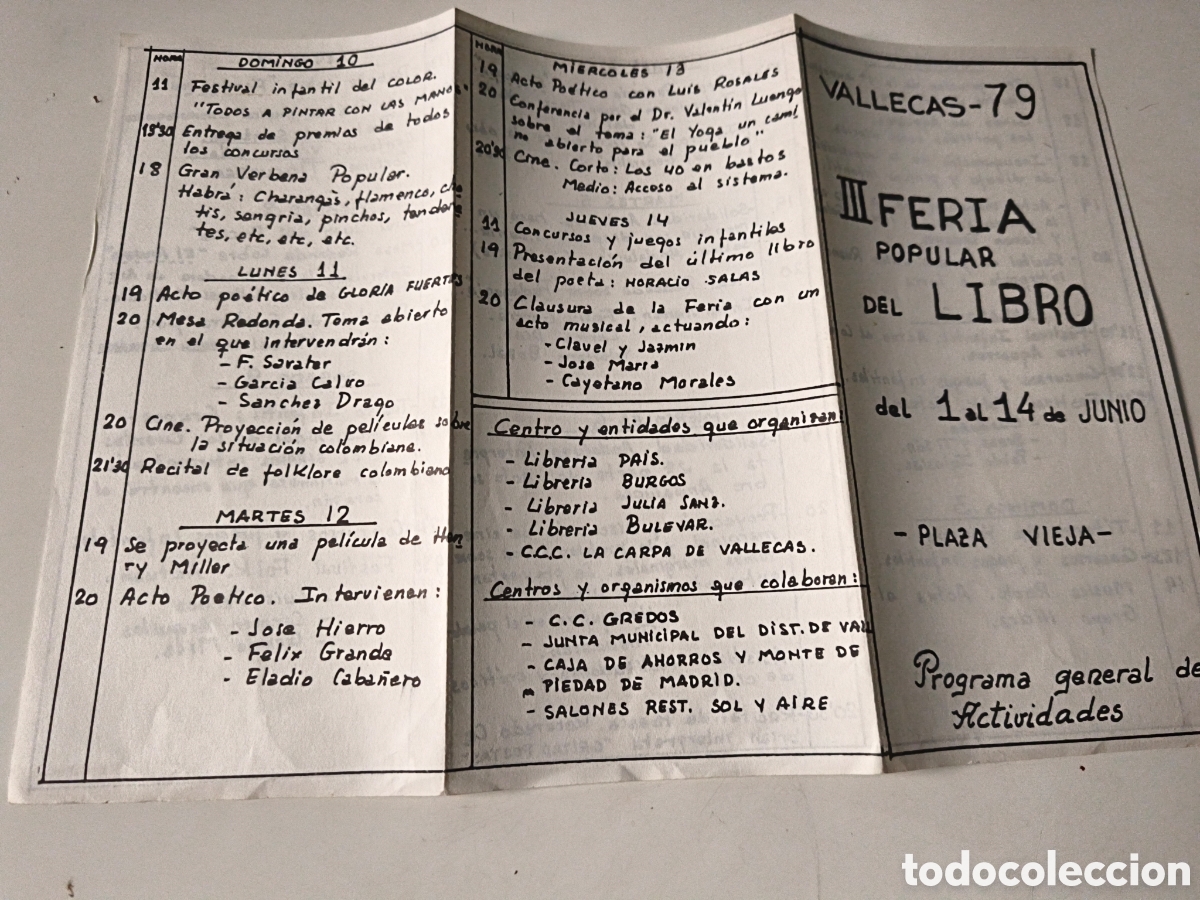 HORA
DOMINGO 10
11 Festival infantil del COLOR.
"TODOS A PINTAR CON LAS MANOS"
Entrega de premios de todos
los concursos
18 Gran Verbena Popular.
Habrá: Charangas, flamenco, cho
tis, sangria, pinchos, tendere
tes, etc, etc, etc.
LUNES 11
19 Acto poético de GLORIA FUERTES
20 Mesa Redonda. Tema abierto
en el que intervendrán:
- F. Savater
- Garcia Calvo
- Sanchez Drago
20 Cine. Proyección de películas sobre
la situación colombiana.
21'30 Recital de folklore colombiano
MARTES 12
19 Se proyecta una película de Hen
ry Miller
20 Acto Poetico. Intervienen:
- Jose Hierro
- Felix Grande
- Eladio Cabañero
HORA
MIERCOLES 13
19 Acto Poético con LUIS ROSALES
20 Conferencia por el Dr. Valentín Luengo
sobre el tema: "El Yoga un cami
no abierto para el pueblo"
20'30 Cine. Corto: Los 40 en bastos
Medio: Acceso al sistema.
JUEVES 14
11 Concursos y juegos infantiles
19 Presentación del último libro
del poeta: HORACIO SALAS
20 Clausura de la Feria con un
acto musical, actuando:
- Clavel y Jazmin
- Jose Maria
- Cayetano Morales
Centro y entidades que organizan:
- Libreria PAIS.
- Libreria BURGOS
- Libreria JULIA SANZ.
- Libreria BULEVAR.
- C.C.C. LA CARPA DE VALLECAS.
Centros y organismos que colaboran:
- C.C. GREDOS
- JUNTA MUNICIPAL DEL DIST. DE VALL
- CAJA DE AHORROS Y MONTE DE
PIEDAD DE MADRID.
- SALONES REST. SOL Y AIRE
VALLECAS-79
III FERIA
POPULAR
DEL LIBRO
del 1 al 14 de JUNIO
- PLAZA VIEJA -
Programa general de
Actividades
todocoleccion